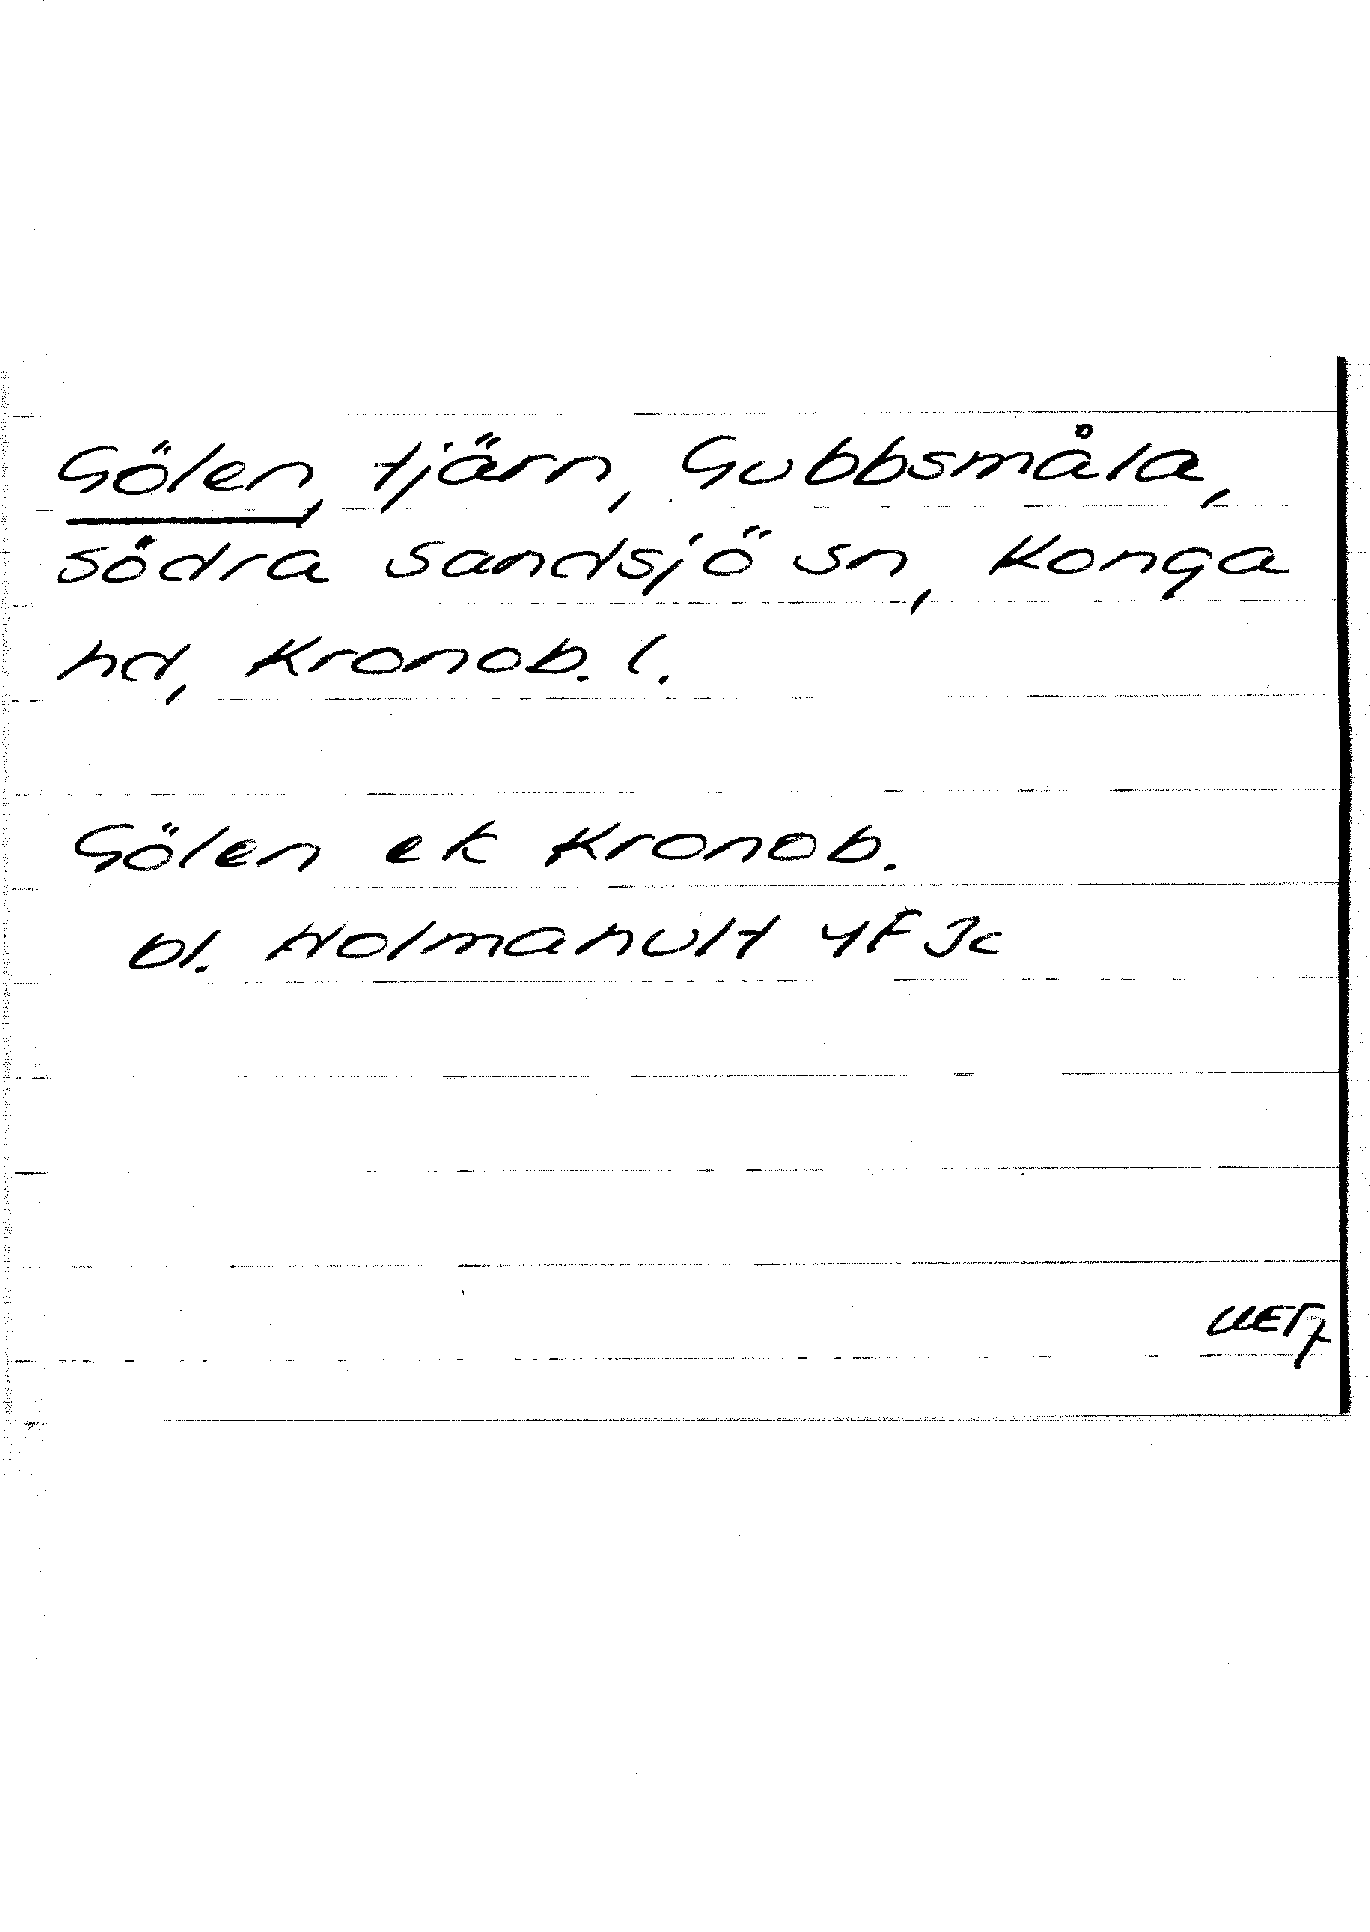 Gölen, tjärn, Gubbsmåla,
södra Sandsjö sn, Konga
hd, Kronob. l.
Gölen ek Kronob.
bl. Holmahult 4F3c